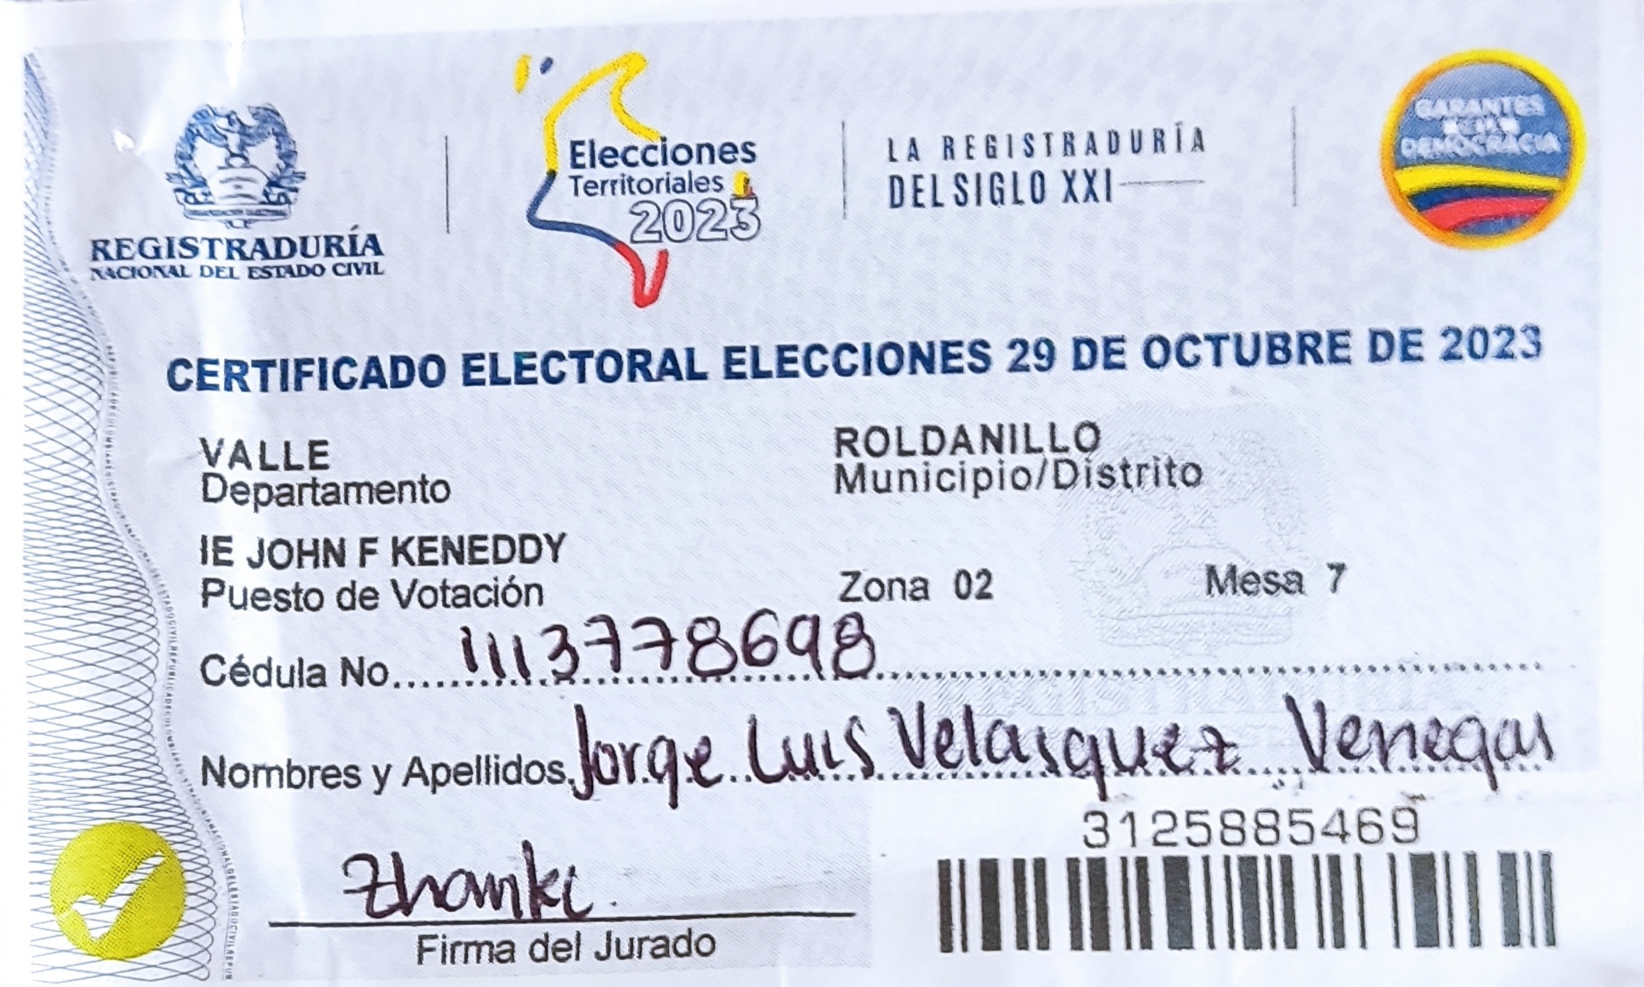 REGISTRADURÍA
NACIONAL DEL ESTADO CIVIL
Elecciones
Territoriales
2023
LA REGISTRADURÍA
DEL SIGLO XXI
GARANTES
DE LA
DEMOCRACIA
CERTIFICADO ELECTORAL ELECCIONES 29 DE OCTUBRE DE 2023
VALLE
Departamento
ROLDANILLO
Municipio/Distrito
IE JOHN F KENEDDY
Puesto de Votación
Zona 02
Mesa 7
Cédula No. 1113778698
Nombres y Apellidos. Jorge Luis Velasquez Venegas
3125885469
Firma del Jurado